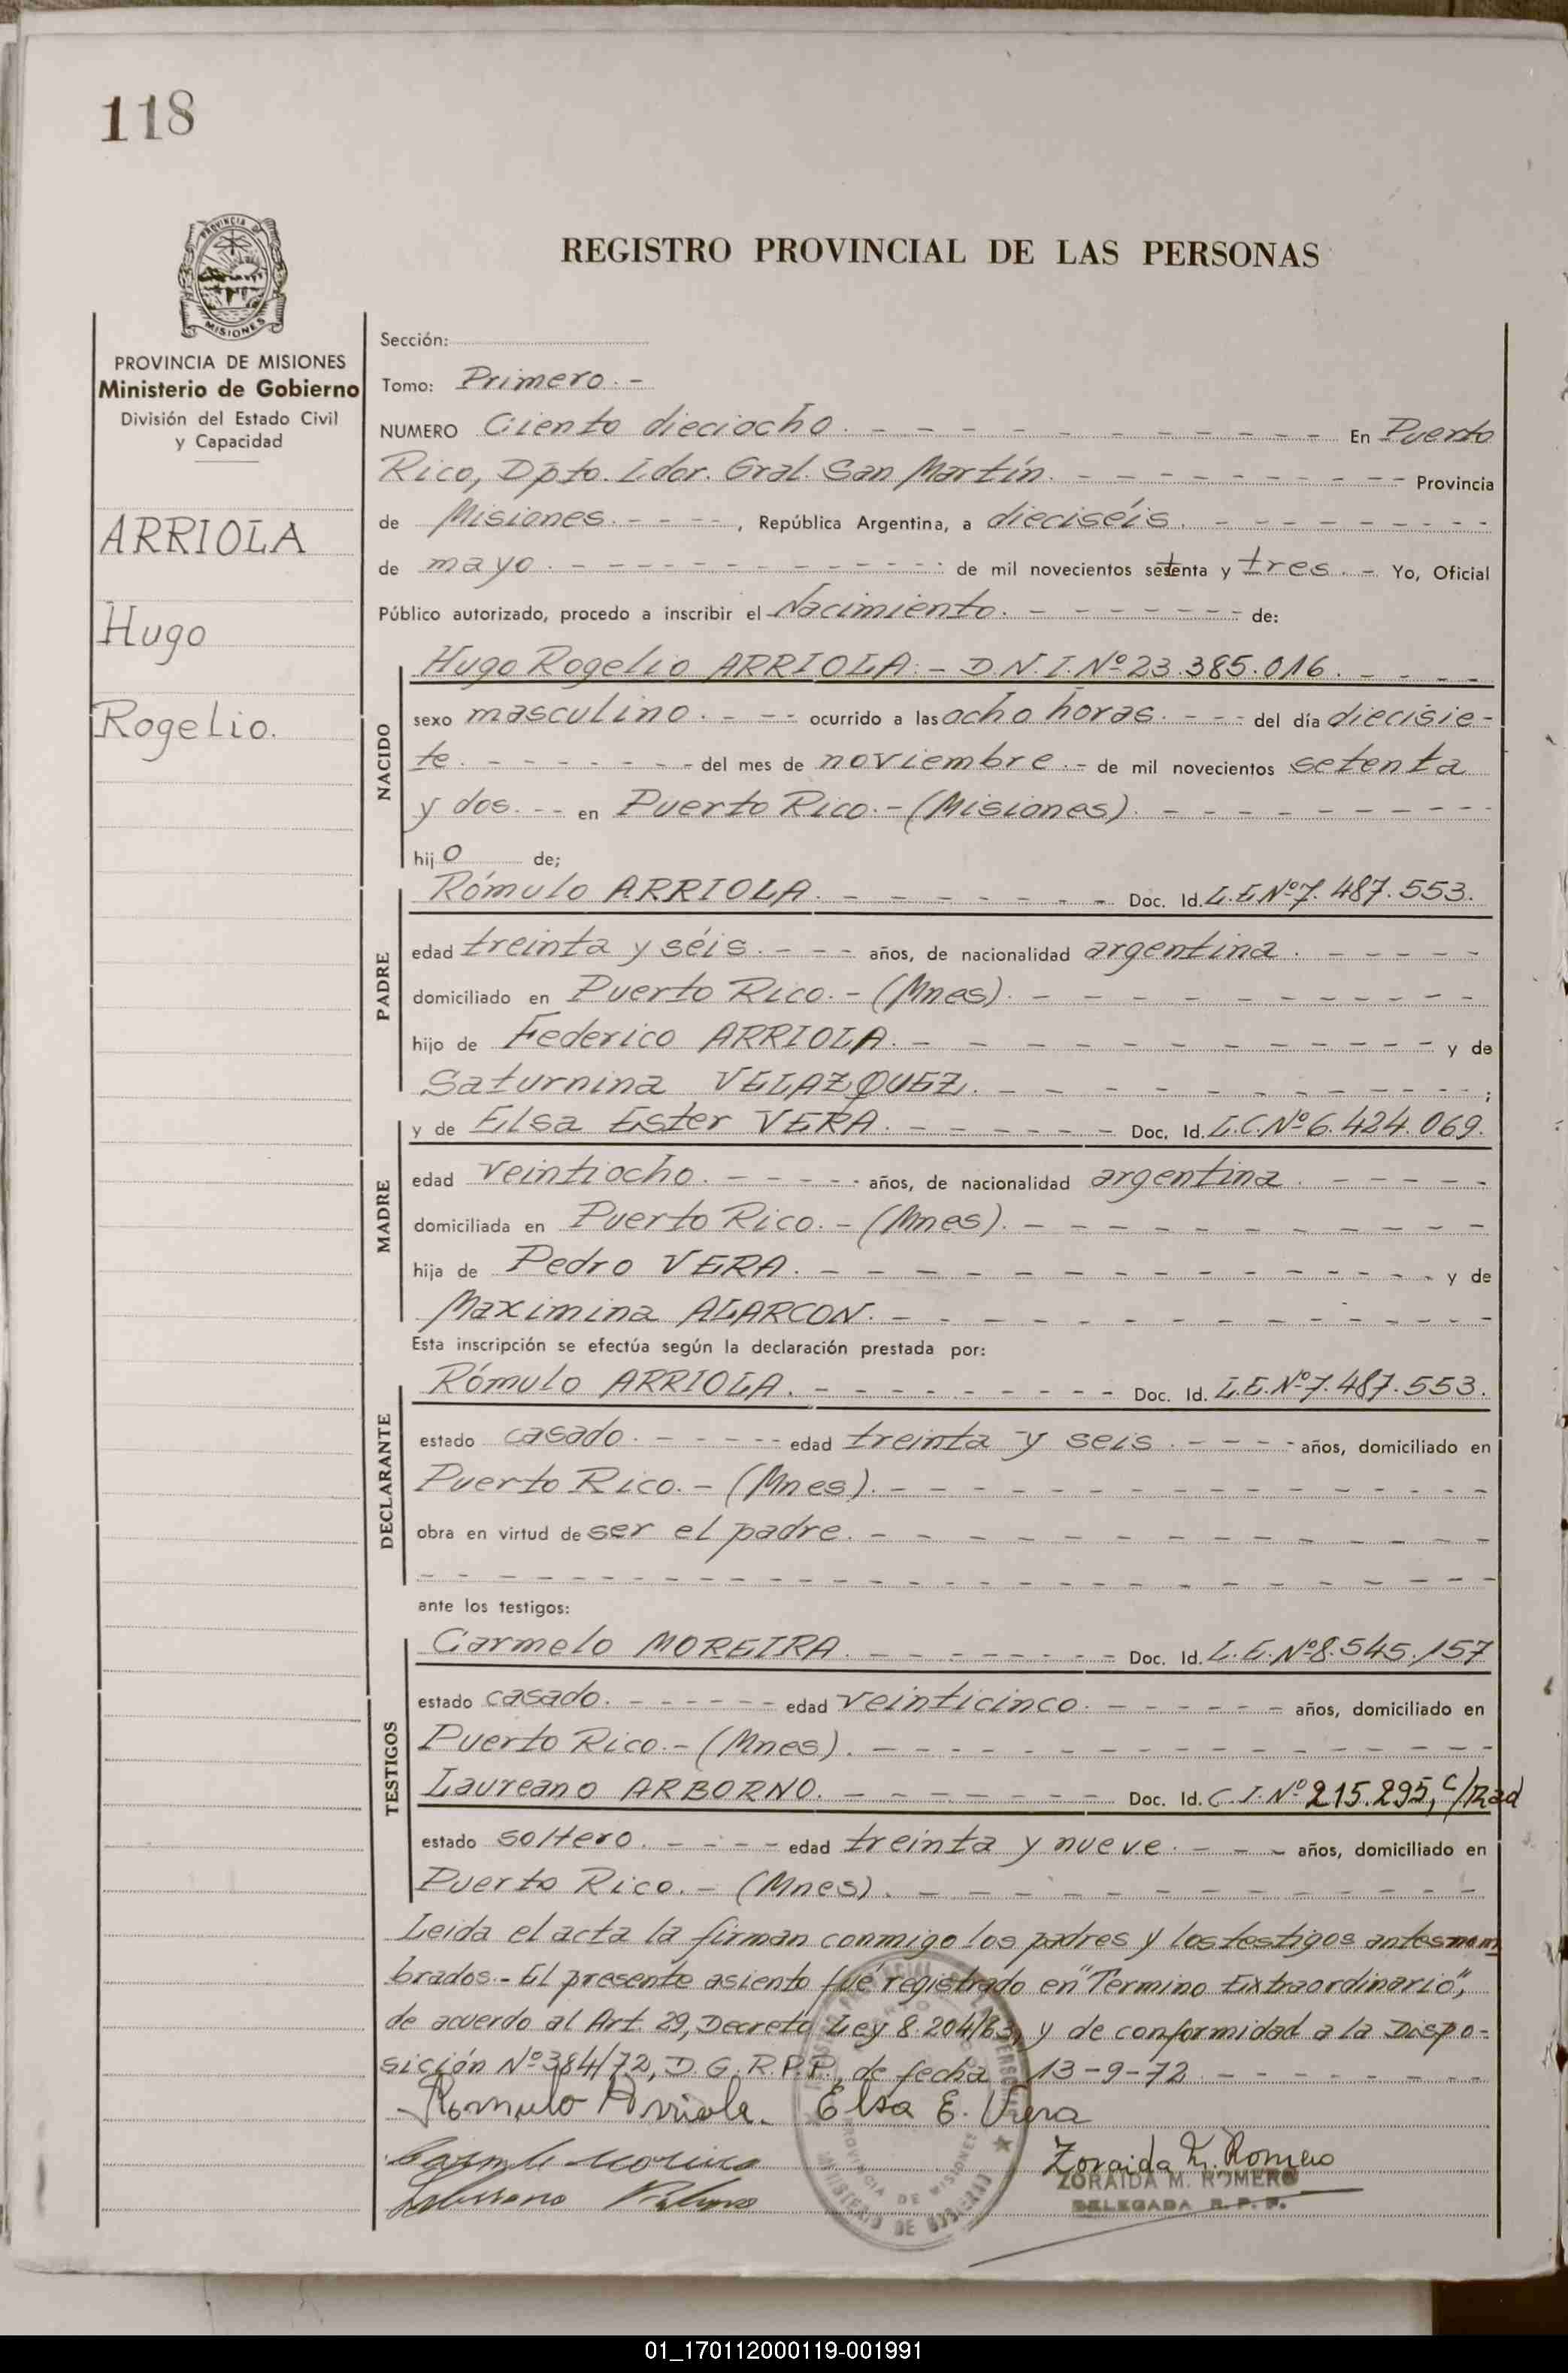 118
PROVINCIA DE
MISIONES
REGISTRO PROVINCIAL DE LAS PERSONAS
PROVINCIA DE MISIONES
Ministerio de Gobierno
División del Estado Civil
y Capacidad
ARRIOLA
Hugo
Rogelio.
Sección:
Tomo: Primero. -
NUMERO Ciento dieciocho. - - - - - - - - - - - - En Puerto
Rico, Dpto. Ldor. Gral. San Martín. - - - - - - - - - Provincia
de Misiones. - - - - , República Argentina, a dieciséis. - - - - - - - - -
de mayo. - - - - - - - - - - - - - - de mil novecientos setenta y tres. - Yo, Oficial
Público autorizado, procedo a inscribir el Nacimiento. - - - - - - - - de:
NACIDO
Hugo Rogelio ARRIOLA. - D.N.I.Nº 23.385.016. - - - -
sexo masculino. - - - ocurrido a las ocho horas. - - - del día diecisie-
te. - - - - - - - del mes de noviembre. - de mil novecientos setenta
y dos. - - en Puerto Rico. - (Misiones). - - - - - - - - -
hijo de;
PADRE
Rómulo ARRIOLA. - - - - - - - Doc. Id. L.E.Nº 7.487.553.
edad treinta y séis. - - - años, de nacionalidad argentina. - - - - -
domiciliado en Puerto Rico. - (Mnes). - - - - - - - - - - -
hijo de Federico ARRIOLA. - - - - - - - - - - - - y de
Saturnina VELAZQUEZ. - - - - - - - - - - - - ;
MADRE
y de Elsa Ester VERA. - - - - - - Doc. Id. L.C.Nº 6.424.069.
edad veintiocho. - - - - - años, de nacionalidad argentina. - - - - -
domiciliada en Puerto Rico. - (Mnes). - - - - - - - - - - -
hija de Pedro VERA. - - - - - - - - - - - - - - y de
Maximina ALARCON. - - - - - - - - - - - - - -
Esta inscripción se efectúa según la declaración prestada por:
DECLARANTE
Rómulo ARRIOLA. - - - - - - - - - Doc. Id. L.E.Nº 7.487.553.
estado casado. - - - - - edad treinta y seis. - - - - años, domiciliado en
Puerto Rico. - (Mnes). - - - - - - - - - - - - - -
obra en virtud de ser el padre. - - - - - - - - - - - - -
- - - - - - - - - - - - - - - - - - - - - - - -
ante los testigos:
TESTIGOS
Carmelo MOREIRA. - - - - - - - - Doc. Id. L.E.Nº 8.545.157
estado casado. - - - - - - edad veinticinco. - - - - - - años, domiciliado en
Puerto Rico. - (Mnes). - - - - - - - - - - - - - - -
Laureano ARBORNO. - - - - - - - Doc. Id. C.I.Nº 215.295, C/Rad
estado soltero. - - - - - edad treinta y nueve. - - - años, domiciliado en
Puerto Rico. - (Mnes). - - - - - - - - - - - - -
Leida el acta la firman conmigo los padres y los testigos antes nom
brados. - El presente asiento fué registrado en "Termino Extraordinario",
de acuerdo al Art. 29, Decreto Ley 8.204/63, y de conformidad a la Dispo-
sición Nº 384/72, D.G.R.P.P., de fecha 13-9-72. - - - - - - - -
Romulo Arriola. Elsa E. Vera
Zoraida M. Romero
ZORAIDA M. ROMERO
DELEGADA R. P. P.
PROVINCIA DE MISIONES
MINISTERIO DE GOBIERNO
01_170112000119-001991